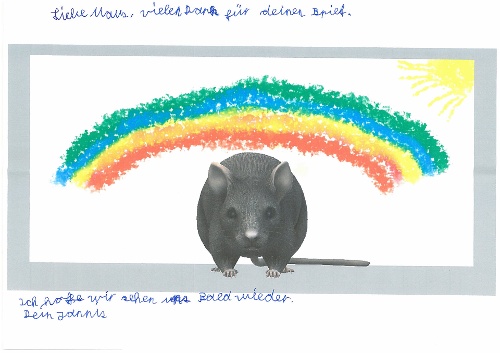 Liebe Maus, vielen Dank für deinen Brief.
Ich hoffe wir sehen uns Bald wieder.
Dein Jannis